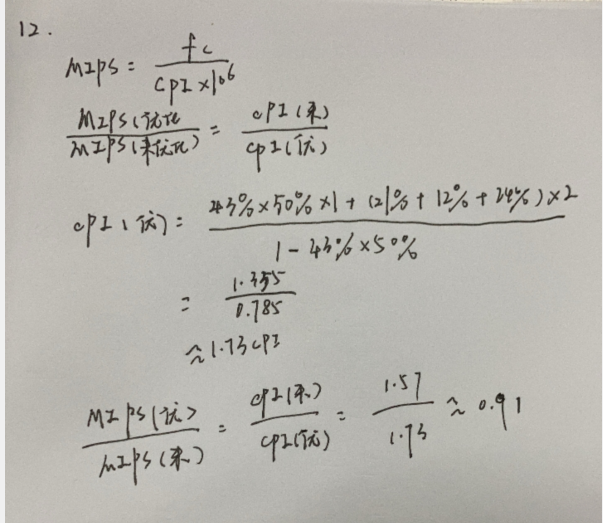 12.
MIPS = fc / CPI×10⁶
MIPS(优化) / MIPS(未优化) = CPI(未) / CPI(优)
CPI(优) = 43%×50%×1 + (21% + 12% + 24%)×2 / 1 - 43%×50%
= 1.355 / 0.785
≈ 1.73 CPI
MIPS(优) / MIPS(未) = CPI(未) / CPI(优) = 1.57 / 1.73 ≈ 0.91